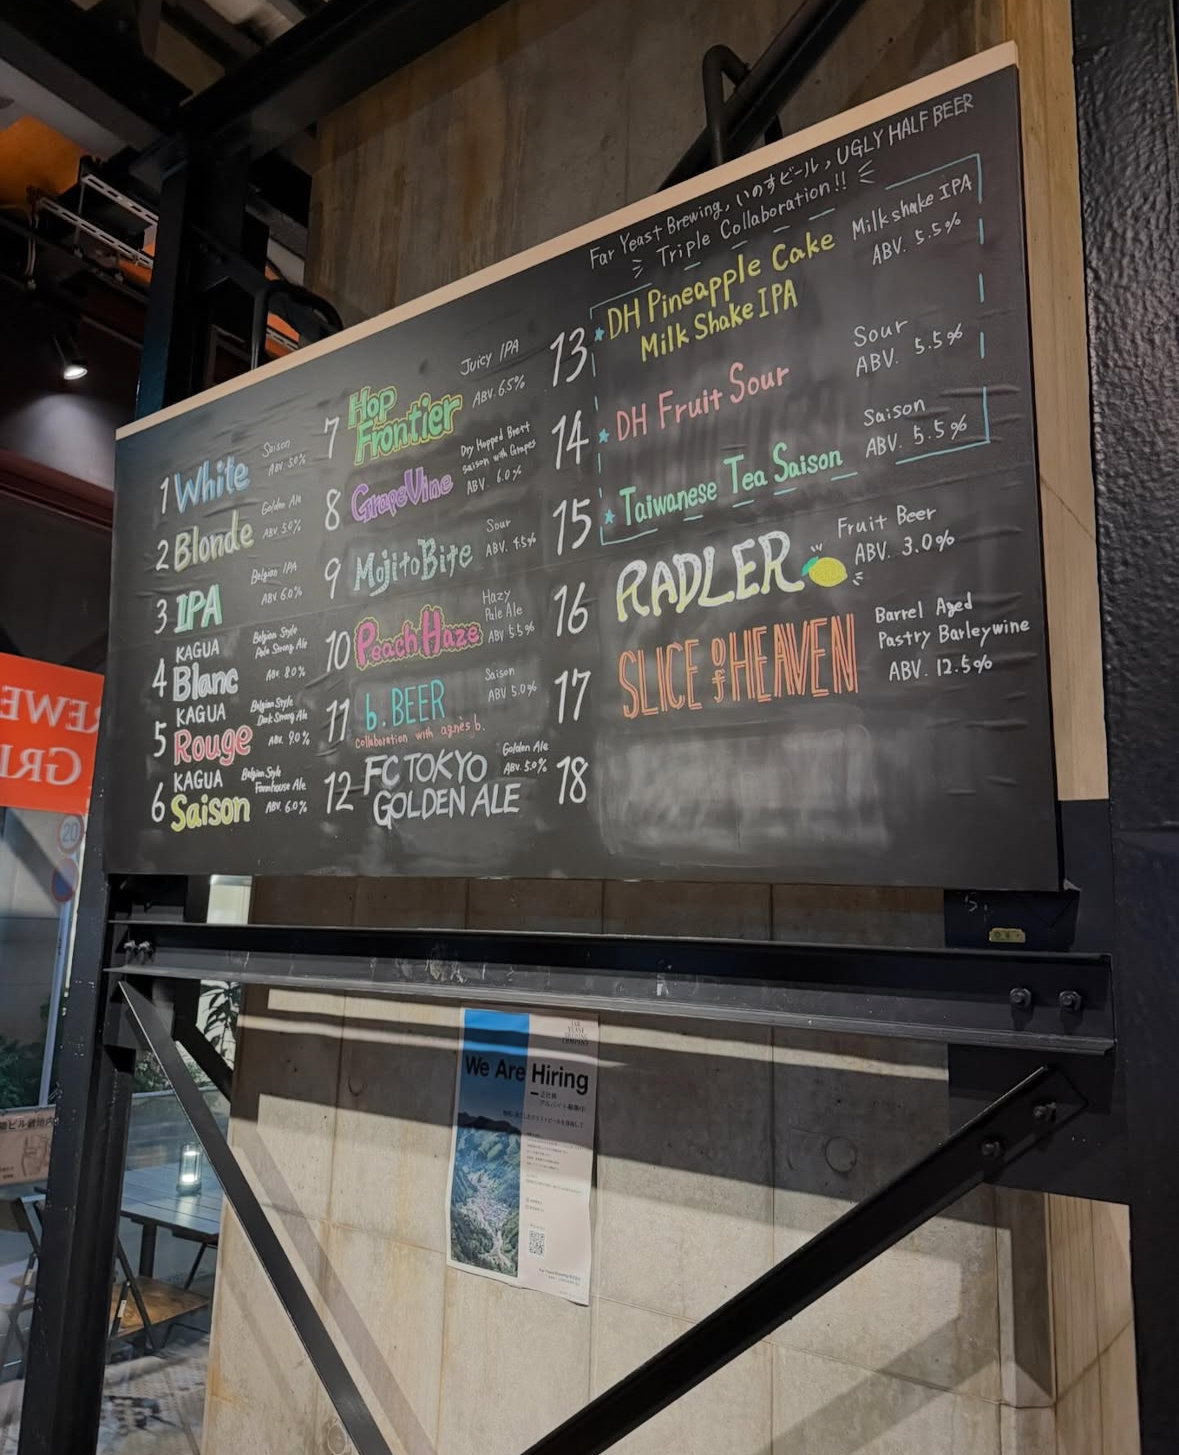 Far Yeast Brewing, いのすビール, UGLY HALF BEER
Triple Collaboration!!
1 White
Saison
ABV 5.0%
2 Blonde
Golden Ale
ABV 5.0%
3 IPA
Belgian IPA
ABV. 6.0%
4 KAGUA
Blanc
Belgian Style
Pale Strong Ale
ABV 8.0%
5 KAGUA
Rouge
Belgian Style
Dark Strong Ale
ABV. 9.0%
6 KAGUA
Saison
Belgian Style
Farmhouse Ale
ABV. 6.0%
7 Hop
Frontier
Juicy IPA
ABV. 6.5%
8 GrapeVine
Dry Hopped Brett
saison with Grapes
ABV. 6.0%
9 MojitoBite
Sour
ABV. 4.5%
10 Peach Haze
Hazy
Pale Ale
ABV 5.5%
11 b. BEER
collaboration with agnès b.
Saison
ABV 5.0%
12 FC TOKYO
GOLDEN ALE
Golden Ale
ABV. 5.0%
13 DH Pineapple Cake
Milk Shake IPA
Milkshake IPA
ABV. 5.5%
14 DH Fruit Sour
Sour
ABV. 5.5%
15 Taiwanese Tea Saison
Saison
ABV. 5.5%
16 RADLER
Fruit Beer
ABV. 3.0%
17 SLICE OF HEAVEN
Barrel Aged
Pastry Barleywine
ABV. 12.5%
18
20
We Are Hiring